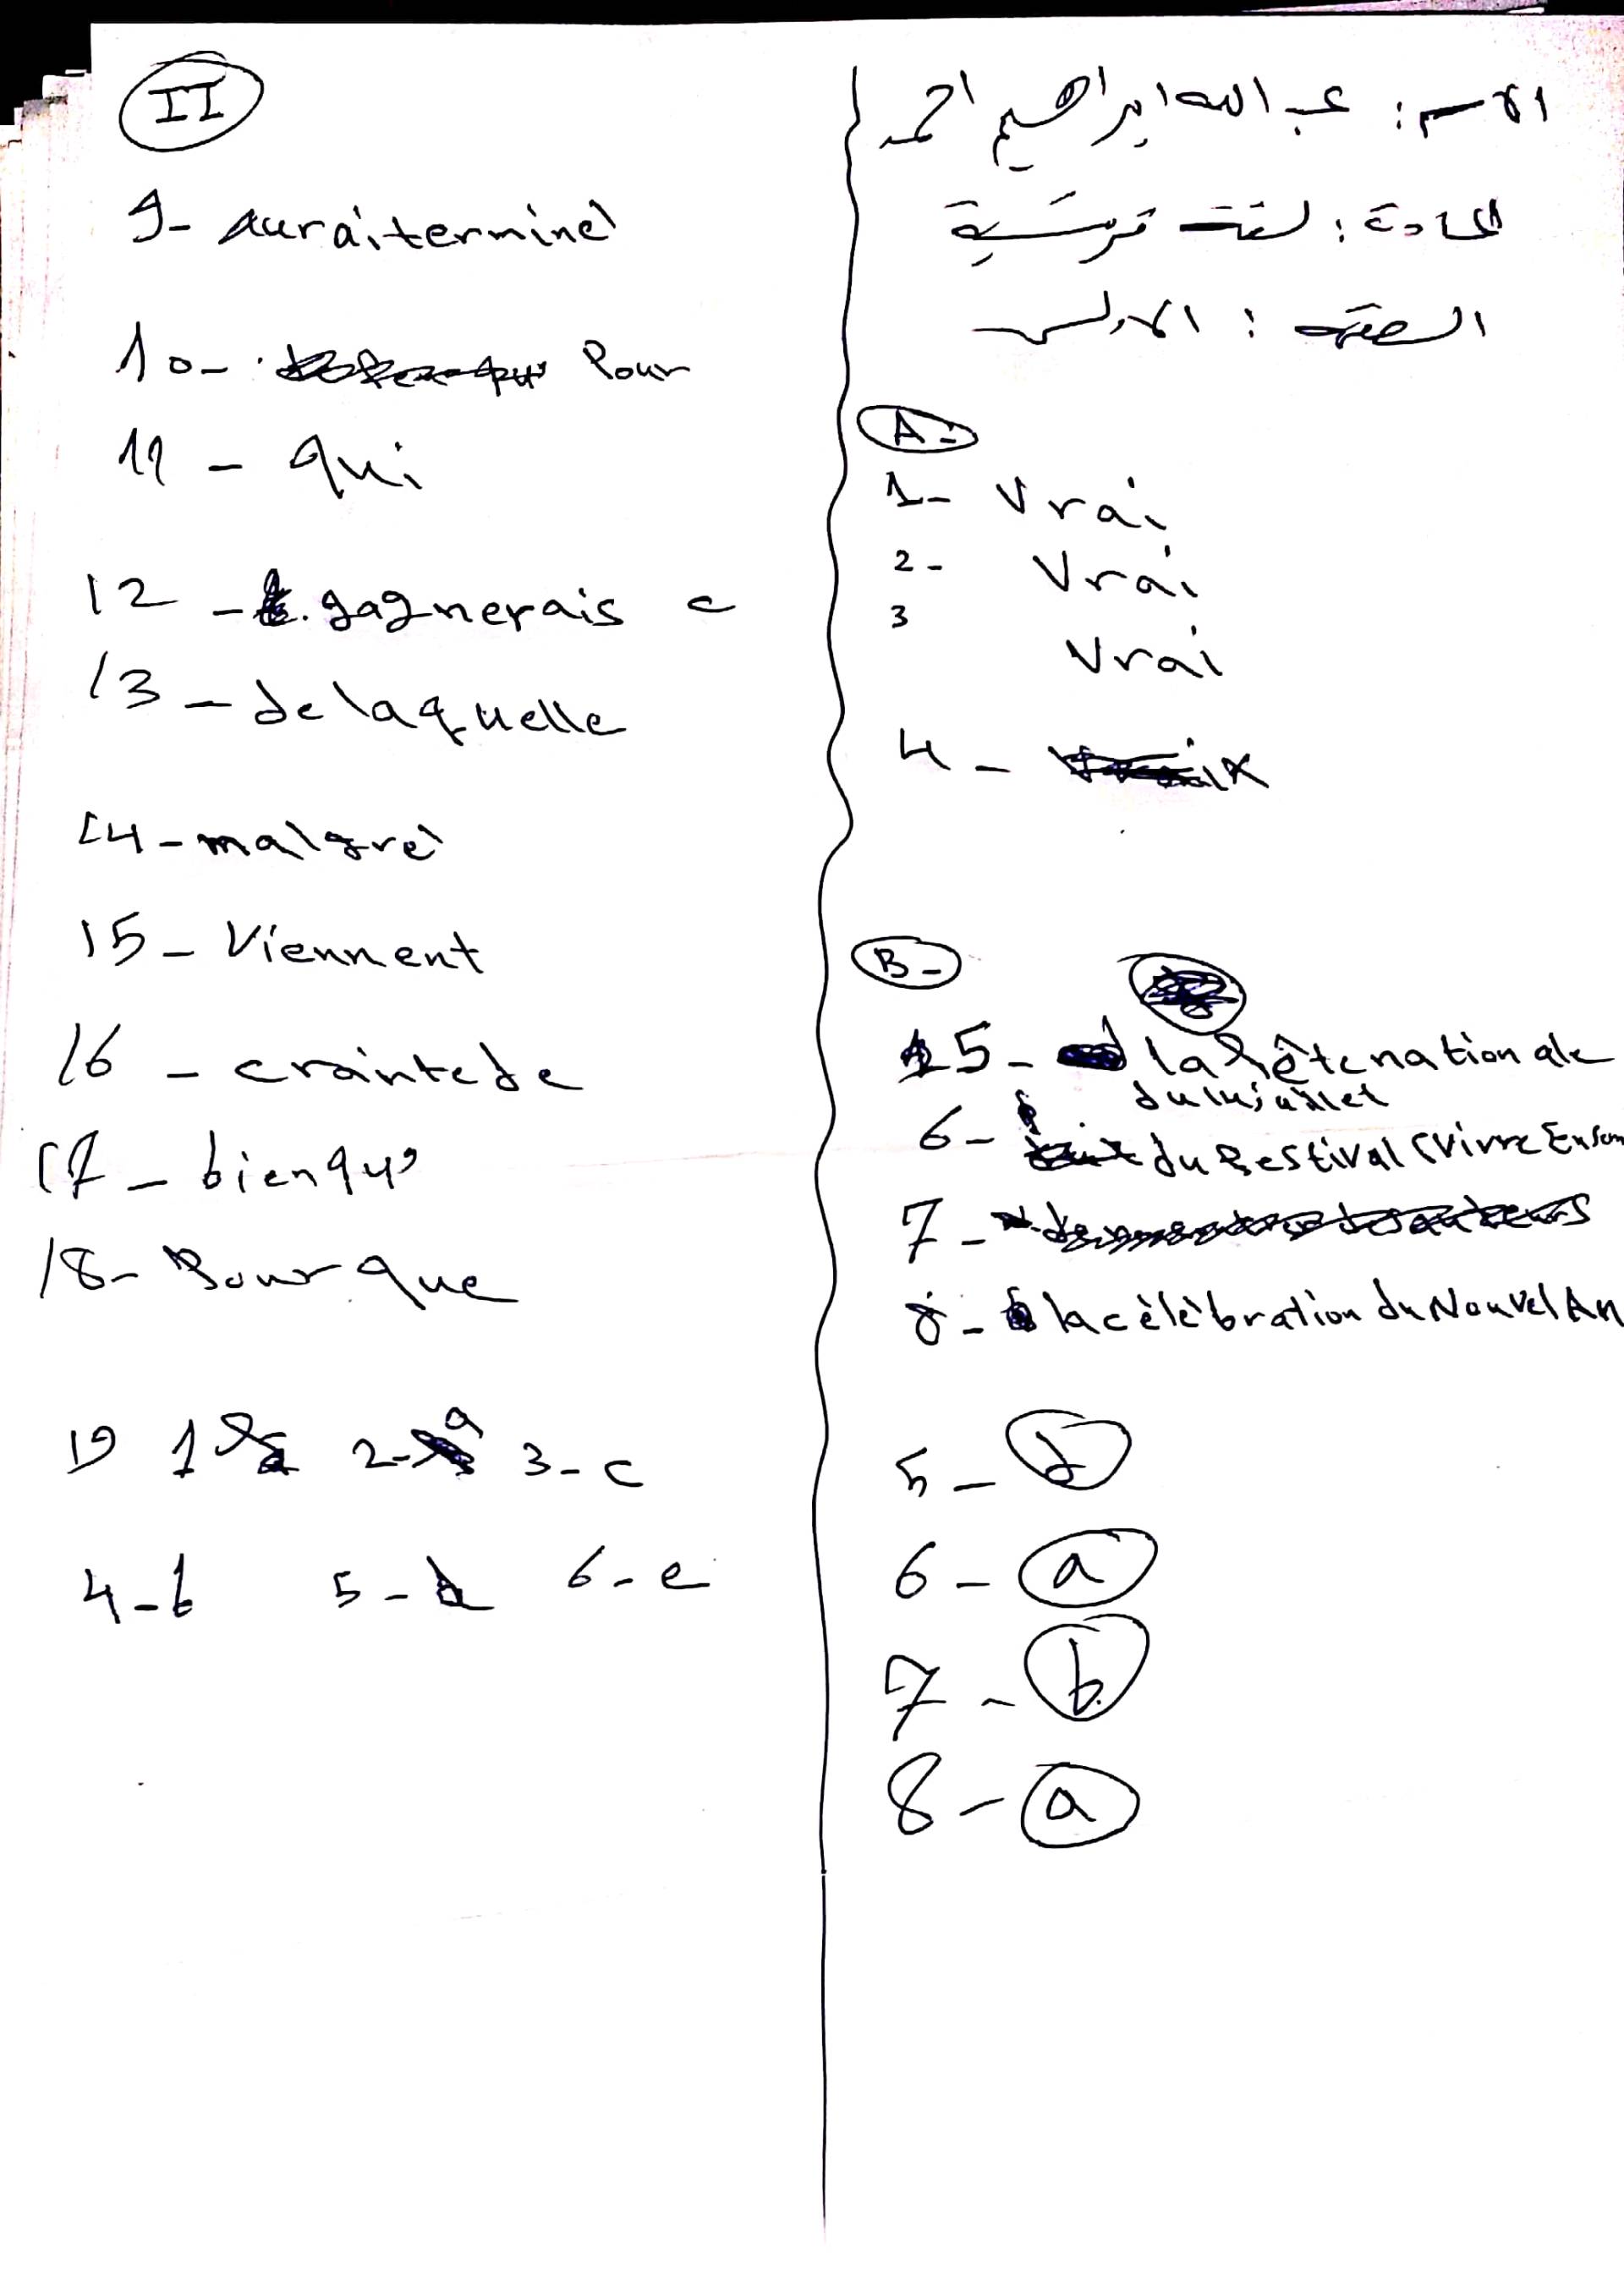 الاسم: عبدالله ابراهيم احمد
المادة: لغة فرنسية
الصفحة: الاولى
A-
1- Vrai
2- Vrai
3 Vrai
4-
B-
5- la fête nationale
du 14 juillet
6- du Festival (Vivre Ensem
7-
8- la célébration du Nouvel An
5- d
6- a
7- b
8- a
II
9- aurait terminé
10- Pour
11- qui
12- gagnerais c
13- de laquelle
14- malgré
15- Viennent
16- crainte de
17- bien qu'
18- Pour que
19 1 2- a 3- c
4- b 5- 6- e